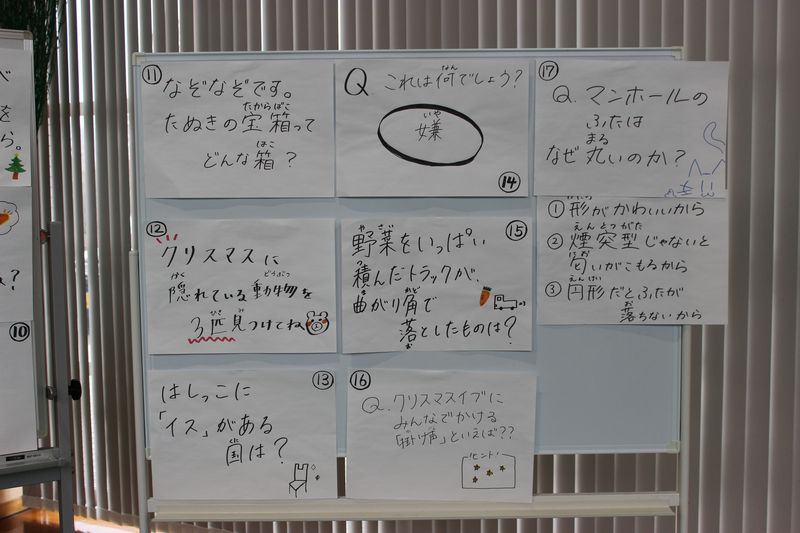 ⑪
なぞなぞです。
たからばこ
たぬきの宝箱って
はこ
どんな箱?
Q これは何でしょう?
なん
いや
嫌
⑭
⑰
Q.マンホールの
ふたは
まる
なぜ丸いのか?
① 形がかわいいから
えんとつがた
② 煙突型じゃないと
にお
匂いがこもるから
えんけい
③ 円形だとふたが
お
落ちないから
⑫
クリスマスに
かく
どうぶつ
隠れている動物を
ひき
み
3匹見つけてね
⑮
やさい
野菜をいっぱい
つ
積んだトラックが、
ま
かど
曲がり角で
落としたものは?
お
⑬
はしっこに
「イス」がある
国は?
⑯
Q.クリスマスイブに
みんなでかける
「掛け声」といえば??
ヒント
⑩